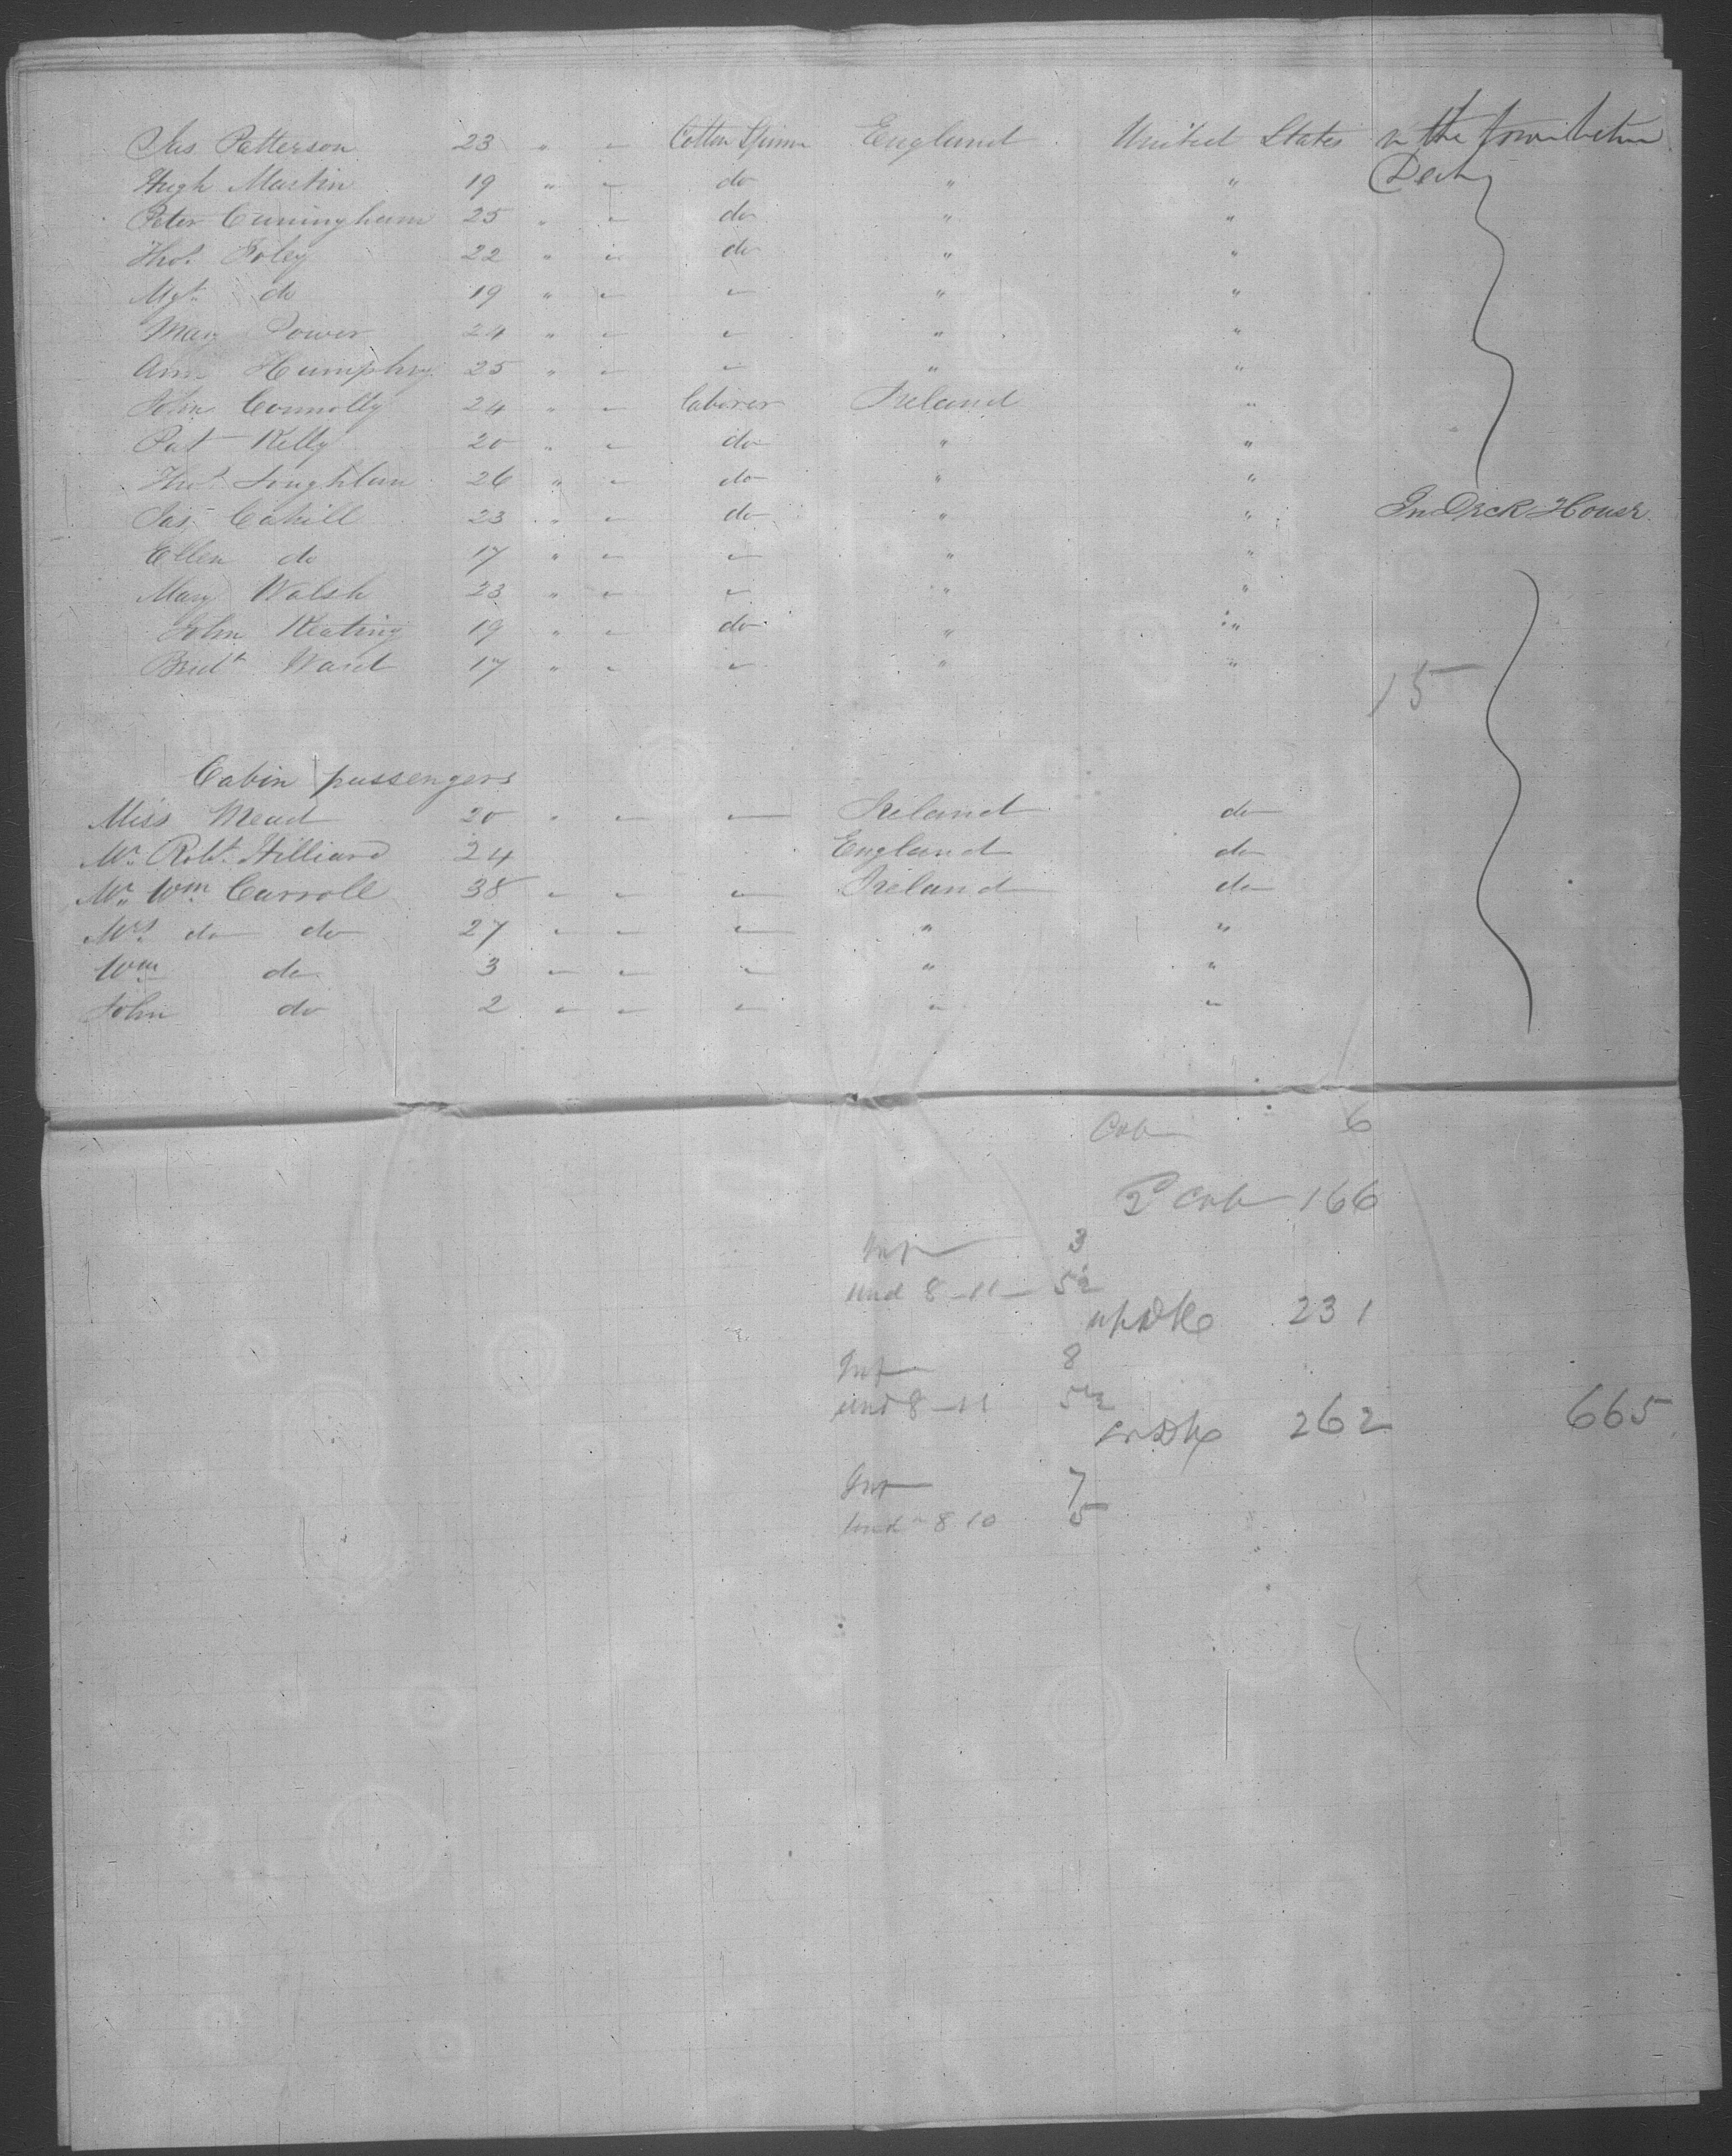 Jas Patterson 23 " " Cotton Spinner England United States in the forwd betwn
Hugh Martin 19 " " do " " Deck
Peter Cuningham 25 " " do " "
Thos Foley 22 " " do " "
Mgt do 19 " " " " "
Mary Power 24 " " " " "
Ann Humphry 25 " " " " "
John Connolly 24 " " laborer Ireland "
Pat Kelly 20 " " do " "
Thos Loughlan 26 " " do " "
Jas Cahill 23 " " do " " In Deck House
Ellen do 17 " " " " "
Mary Walsh 23 " " " " "
John Keating 19 " " do " "
Bridt Ward 17 " " " " "
15
Cabin passengers
Miss Mead 20 " " " Ireland do
Mr Robt Hilliard 24 England do
Mr Wm Carroll 38 " " " Ireland do
Mrs do do 27 " " " " "
Wm do 3 " " " " "
John do 2 " " " " "
Cab 6
2d Cab 166
Inf 3
und 8-11- 5½
up Dk 231
Inf 8
und 8-11 5½
Dk 262 665
Inf 7
und 8 10 5